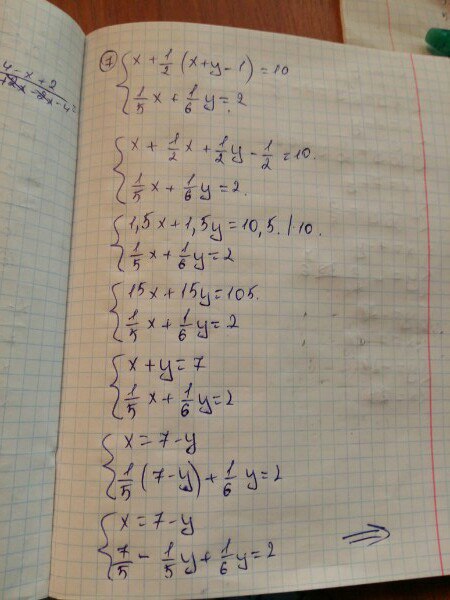 4 - x + 2
⑦ { x + 1/2 (x + y - 1) = 10
1/5 x + 1/6 y = 2
{ x + 1/2 x + 1/2 y - 1/2 = 10.
1/5 x + 1/6 y = 2.
{ 1,5x + 1,5y = 10,5. / 10.
1/5 x + 1/6 y = 2
{ 15x + 15y = 105.
1/5 x + 1/6 y = 2
{ x + y = 7
1/5 x + 1/6 y = 2
{ x = 7 - y
1/5 (7 - y) + 1/6 y = 2
{ x = 7 - y
7/5 - 1/5 y + 1/6 y = 2 ⇒